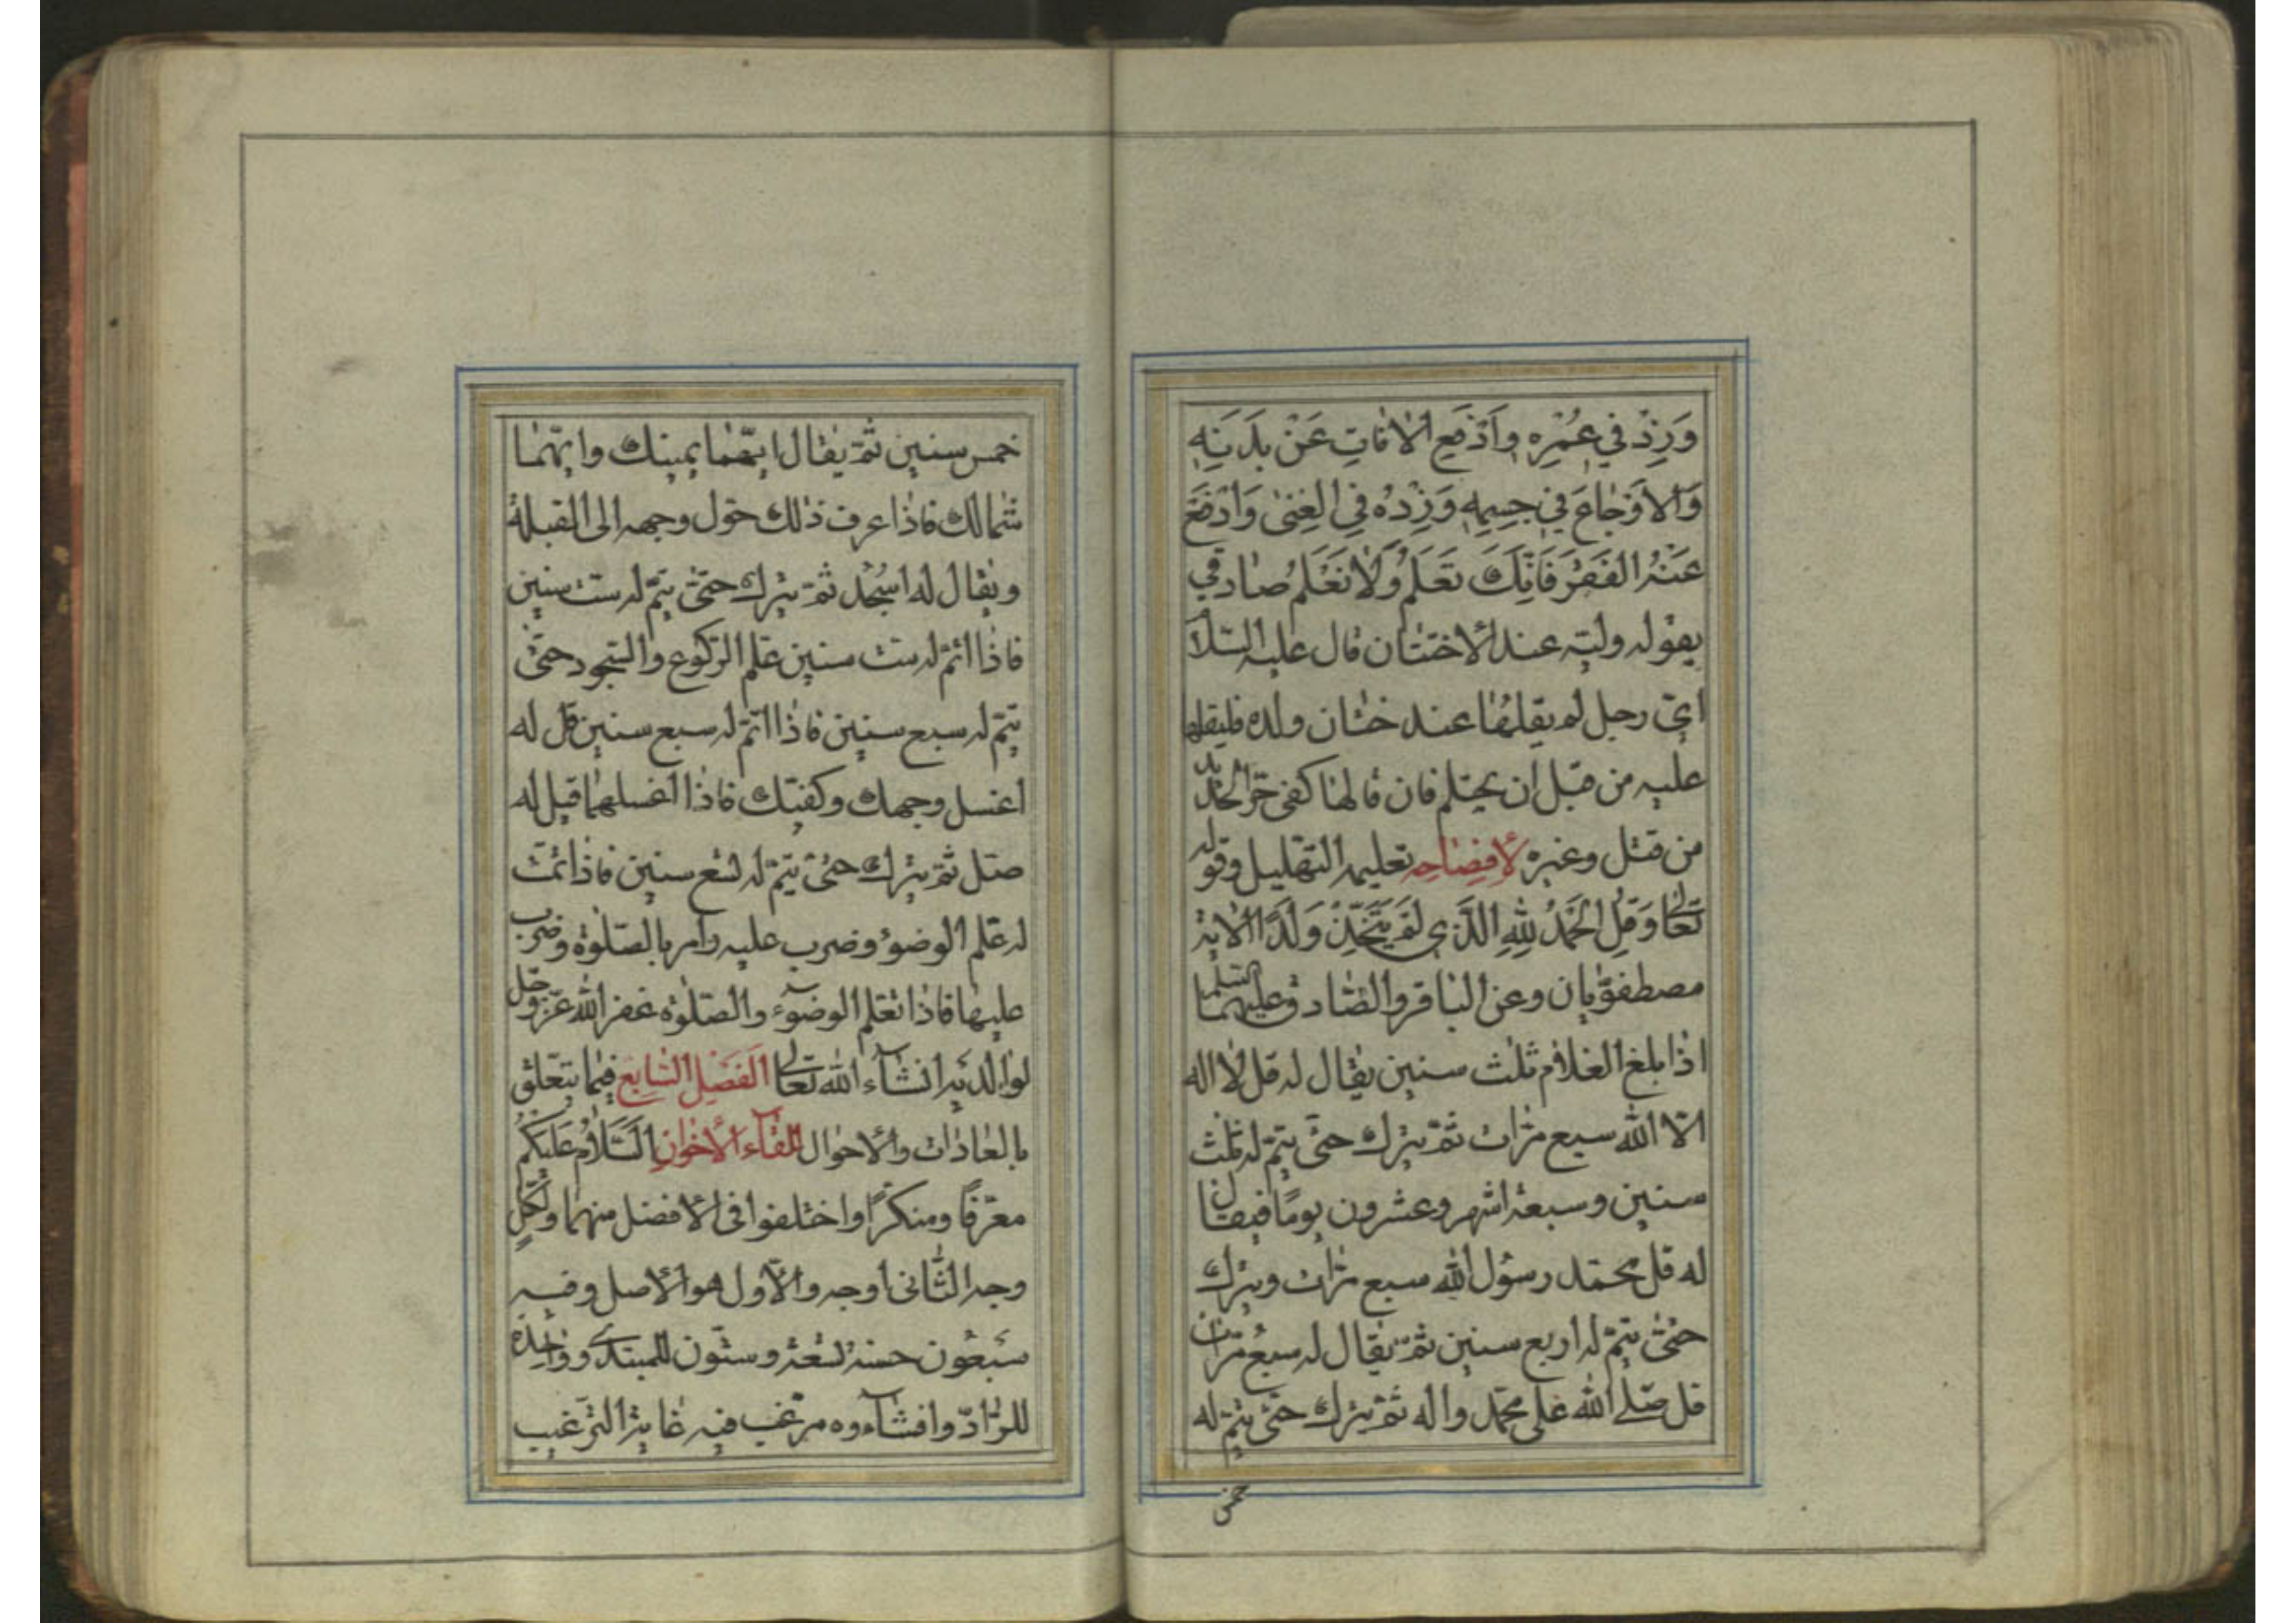 وَزِدْ فِي عُمْرِهِ وَادْفَعِ الْاٰفَاتِ عَنْ بَدَنِهِ
وَالْاَوْجَاعَ فِي جِسْمِهِ وَزِدْهُ فِي الْغِنٰى وَادْفَعْ
عَنْهُ الْفَقْرَ فَاِنَّكَ تَعْلَمُ وَلَا نَعْلَمُ صادقي
يقوله وليّه عند الاختتان قال عليه السّلا
ايّ رجل لم يقلها عند ختان ولده فليقلها
عليه من قبل ان يحتلم فان قالها كفى حرّ الحديد
من قتل وغيره لِأِفصاحِه تعليمه التهليل وقوله
تعالى وَقُلِ الْحَمْدُ لِلّٰهِ الَّذِي لَمْ يَتَّخِذْ وَلَدًا الاية
مصطفويّان وعن الباقر والصّادق عليهما السّلم
اذا بلغ الغلام ثلث سنين يقال له قل لا اله
الّا الله سبع مرّات ثمّ يترك حتّى يتمّ له ثلث
سنين وسبعة اشهر وعشرون يومًا فيقال
له قل محمّد رسول الله سبع مرّات ويترك
حتّى يتمّ له اربع سنين ثمّ يقال له سبع مرّات
قل صلّى الله على محمّد واله ثمّ يترك حتّى يتمّ له
خمس
خمس سنين ثمّ يقال ايّهما يمينك وايّهما
شمالك فاذا عرف ذلك حوّل وجهه الى القبلة
ويقال له اسجُد ثمّ يترك حتّى يتمّ له ست سنين
فاذا اتمّ له ست سنين علم الرّكوع والسّجود حتّى
يتمّ له سبع سنين فاذا اتمّ له سبع سنين قل له
اغسل وجهك وكفّيك فاذا اغسلهما قيل له
صلّ ثمّ يترك حتّى يتمّ له تسع سنين فاذا تمّت
له علّم الوضوء وضرب عليه وامر بالصّلوة وضرب
عليها فاذا تعلم الوضوء والصّلوة غفر الله عزّ وجلّ
لوالديه انشاء الله تعالى الفَصْل السّابع فيما يتعلّق
بالعادات والاحوال للقاء الاخوان السَّلَامُ عَلَيْكُمْ
معرّفًا ومنكرًا واختلفوا فى الافضل منهما ولكلٍ
وجه الثّانى اوجه والاوّل هو الاصل وفيه
سبعون حسنة تسعة وستّون للمبتدى وواحدة
للرّادّ وافشاءوه مرغّب فيه غاية التّرغيب